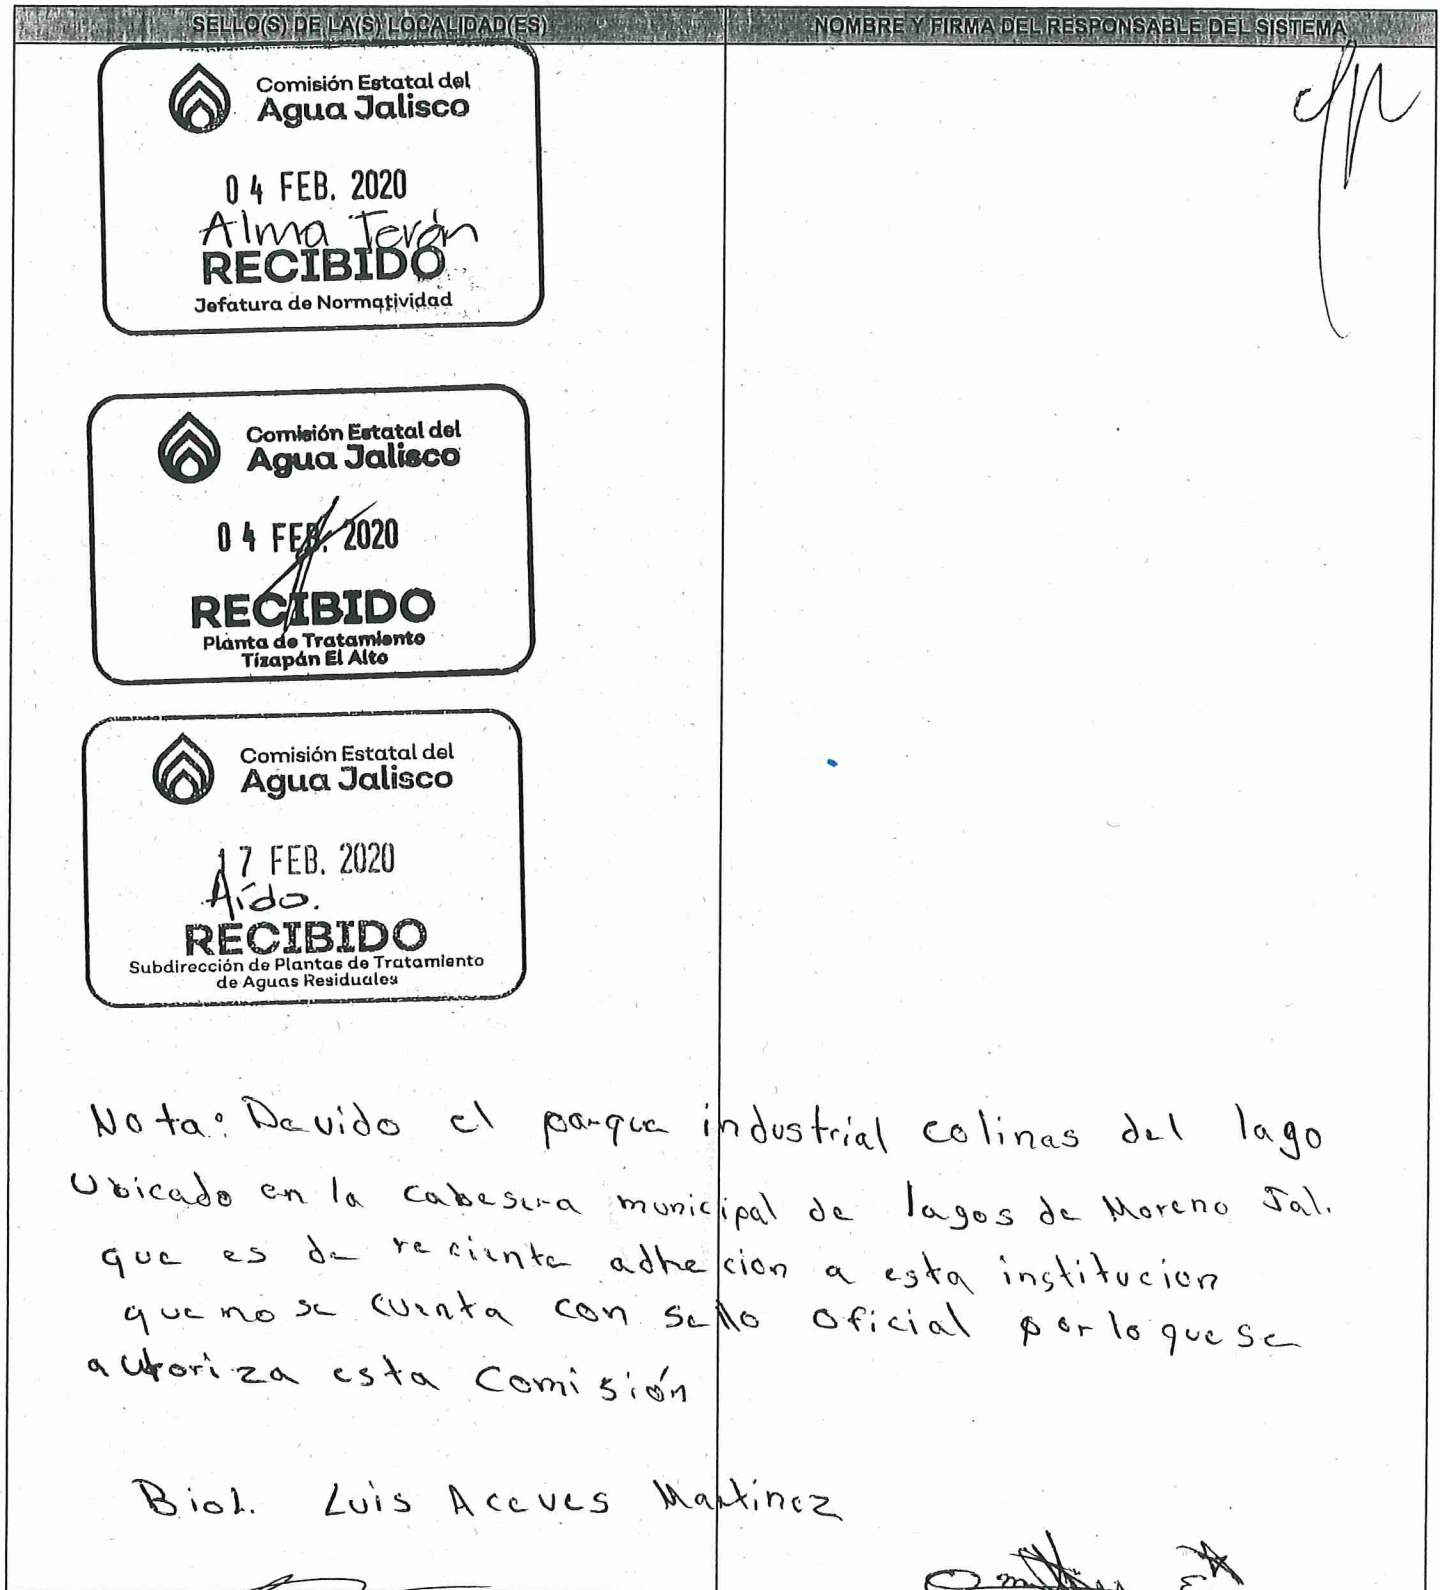 SELLO(S) DE LA(S) LOCALIDAD(ES)
NOMBRE Y FIRMA DEL RESPONSABLE DEL SISTEMA
Comisión Estatal del
Agua Jalisco
04 FEB. 2020
Alma Terán
RECIBIDO
Jefatura de Normatividad
Comisión Estatal del
Agua Jalisco
04 FEB. 2020
RECIBIDO
Planta de Tratamiento
Tizapán El Alto
Comisión Estatal del
Agua Jalisco
17 FEB. 2020
Aído.
RECIBIDO
Subdirección de Plantas de Tratamiento
de Aguas Residuales
Nota: Devido el parque industrial colinas del lago
Ubicado en la cabesera municipal de lagos de Moreno Jal.
que es de reciente adhecion a esta institucion
que no se cuenta con sello oficial por lo que se
autoriza esta Comisión
Biol. Luis Aceves Martinez